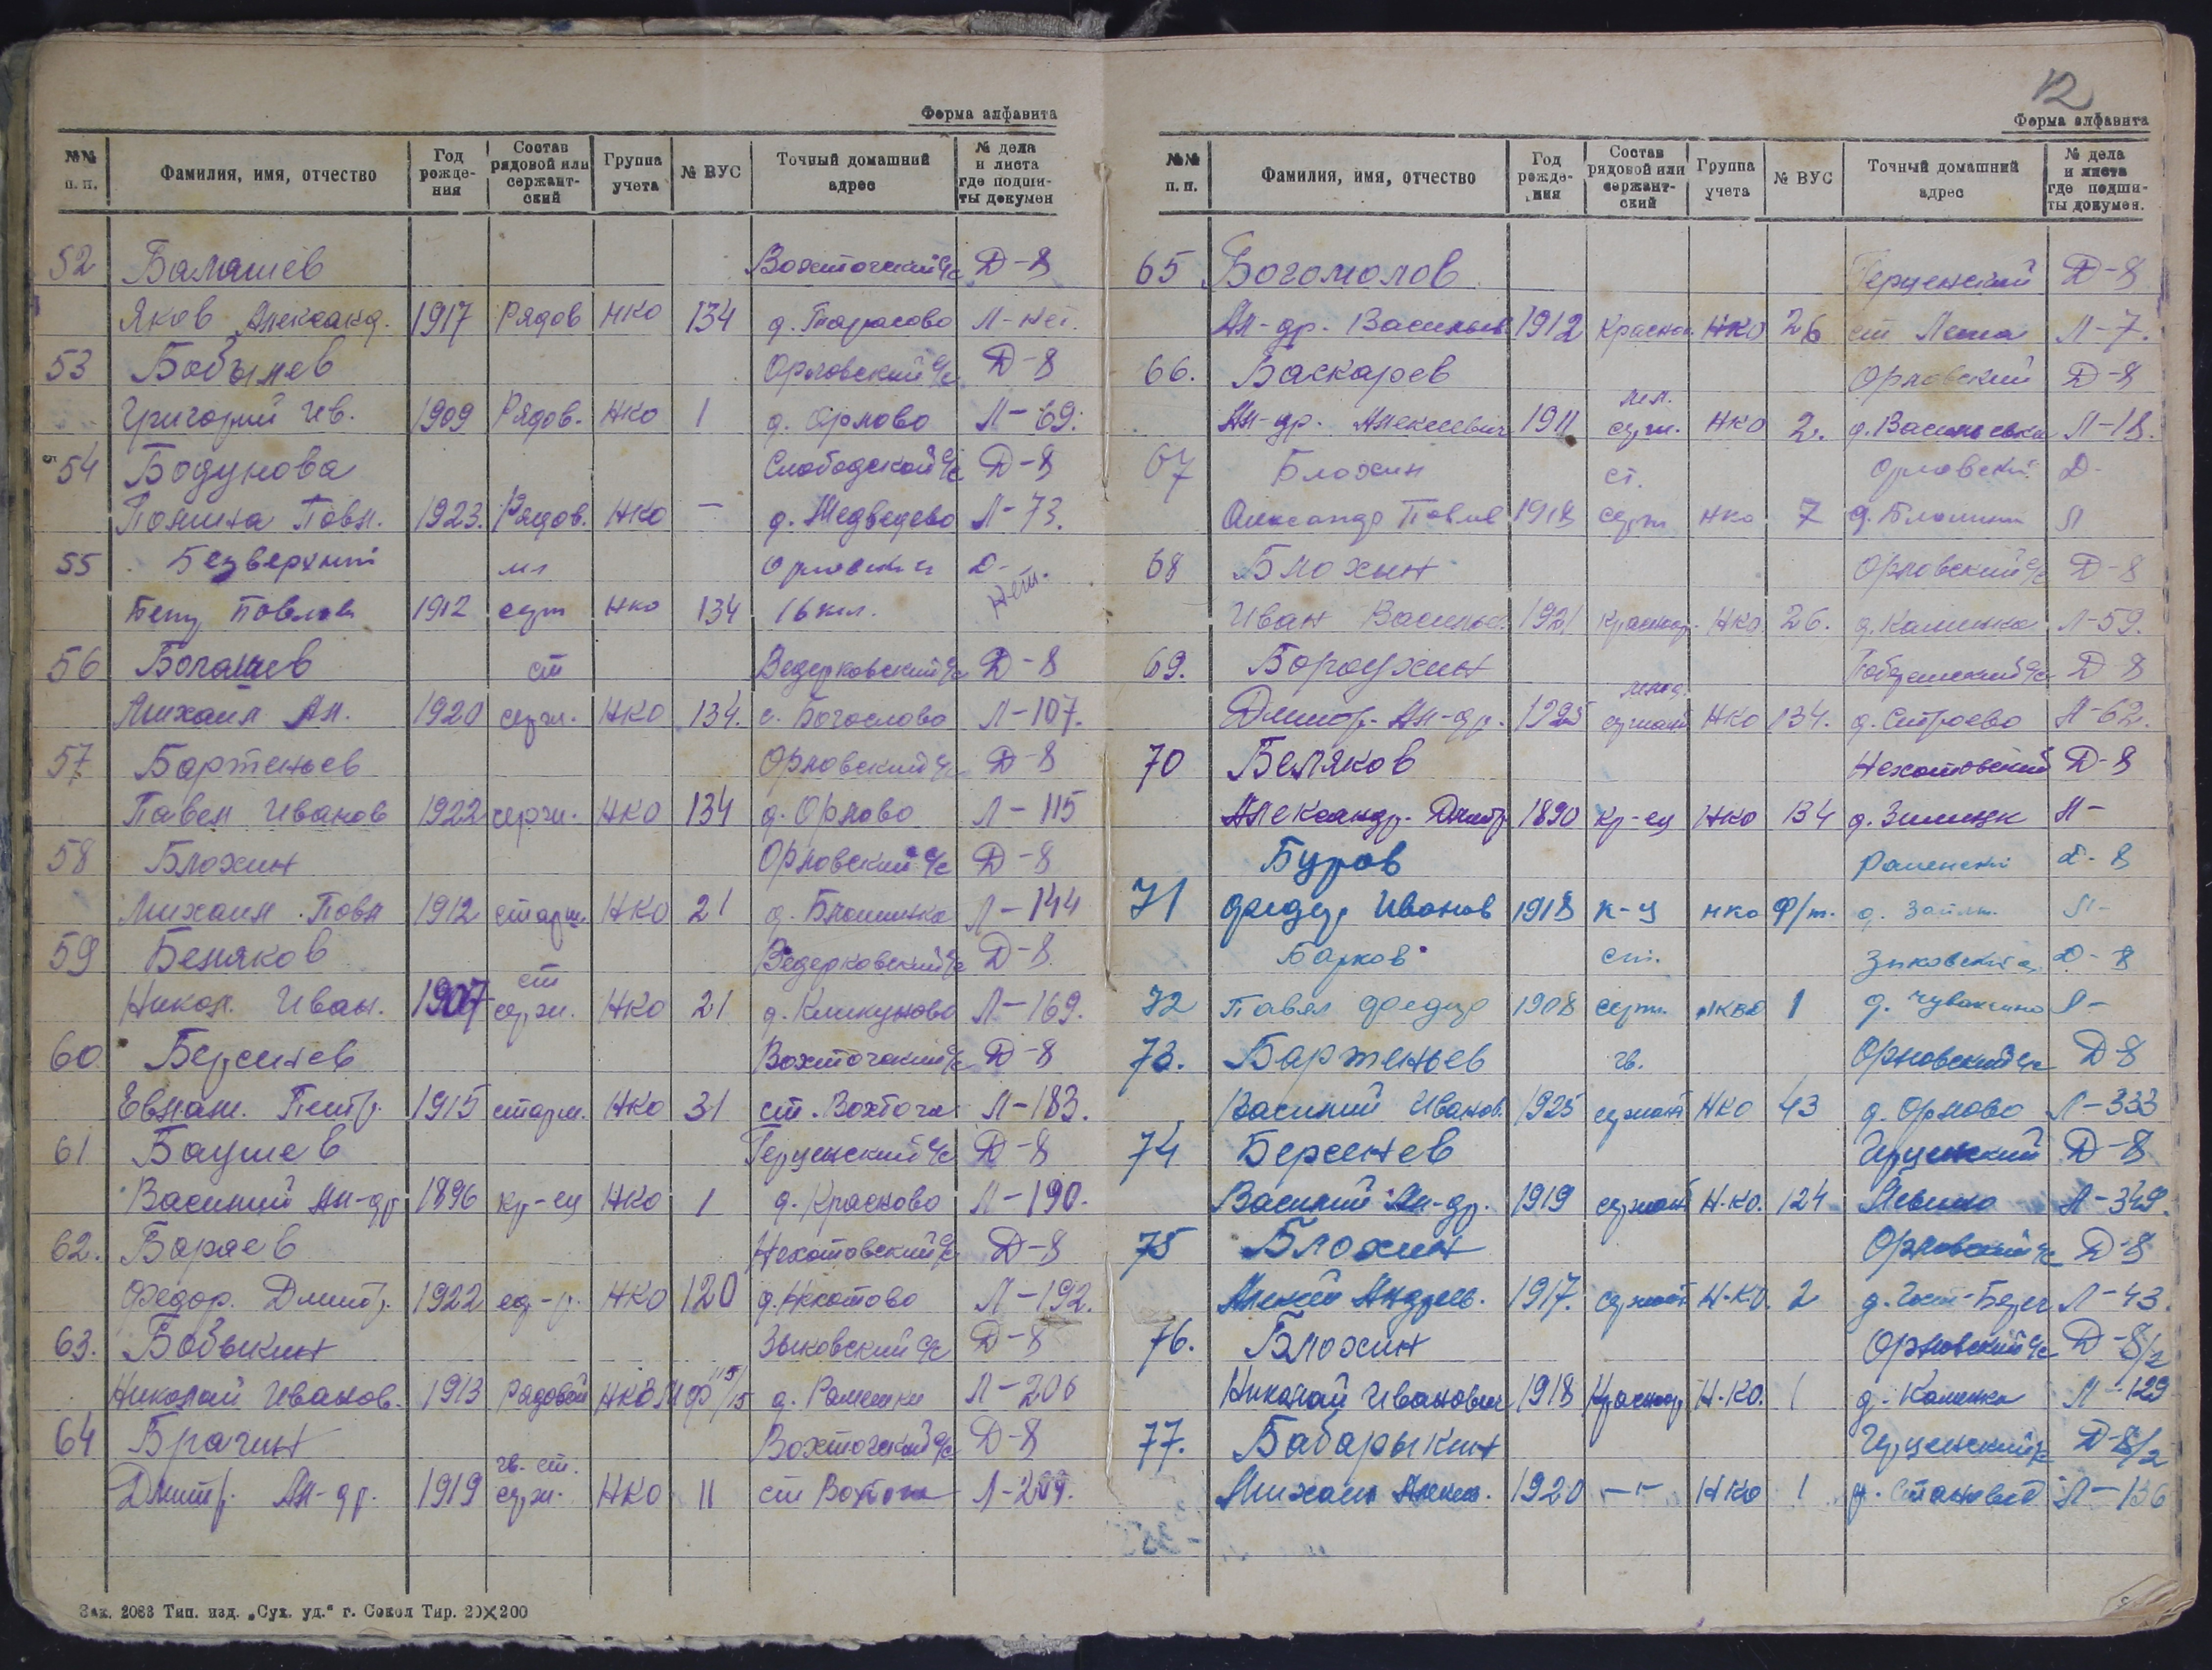 Форма алфавита
№№ п. п. Фамилия, имя, отчество Год рождения Состав рядовой или сержантский Группа учета № ВУС Точный домашний адрес № дела и листа где подшиты докумен
52 Балашев Вохтогский с/с Д-8
Яков Александ. 1917 Рядов НКО 134 д. Тарасово Л-нет.
53 Бобылев Орловский с/с Д-8
Григорий Ив. 1909 Рядов. НКО 1 д. Орлово Л-69.
54 Бодунова Слободской с/с Д-8
Полина Павл. 1923. Рядов. НКО — д. Медведево Л-73.
55 Безверхний мл Орловский Д-
Павлов 1912 серж НКО 134 16 кл. Нет.
56 Богашев ст Ведерковский с/с Д-8
Михаил Ал. 1920 серж. НКО 134. с. Богослово Л-107.
57 Бартеньев Орловский с/с Д-8
Павел Иванов 1922 серж. НКО 134 д. Орлово Л-115
58 Блохин Орловский с/с Д-8
Михаил Павл 1912 старш. НКО 21 д. Л-144
59 Беляков Ведерковский с/с Д-8.
ст
Никол. Иван. 1907 серж. НКО 21 д. Л-169.
60 Берсенев Вохтогский с/с Д-8
Евлам. Петр. 1915 старш. НКО 31 ст. Вохтога Л-183.
61 Баушев Герценский с/с Д-8
Василий Ал-др 1896 кр-ец НКО 1 д. Красново Л-190.
62. Бараев Нехотовский с/с Д-8
Федор. Дмитр. 1922 НКО 120 д. Нехотово Л-192.
63. Бобыкин Зыковский с/с Д-8
Николай Иванов. 1913 Рядовой д. Рамешки Л-206
64 Брагин Вохтогский с/с Д-8
гв. ст.
Дмитр. Ал-др. 1919 серж. НКО 11 ст Вохтога
Зак. 2083 Тип. изд. „Сух. уд.“ г. Сокол Тир. 20×200
12
Форма алфавита
№№ п. п. Фамилия, имя, отчество Год рождения Состав рядовой или сержантский Группа учета № ВУС Точный домашний адрес № дела и листа где подшиты докумен.
65 Богомолов Герценский Д-8
Ал-др. Васильев 1912 Красноа. НКО 26 ст Лежа Л-7.
66. Баскарев Орловский Д-8
мл.
Ал-др. Алексеевич 1911 серж. НКО 2. д. Васильевка Л-18.
67 Блохин ст. Орловский Д-
Александр Павлов 1918 серж НКО 7 д. Л
68 Блохин Орловский с/с Д-8
Иван Васильев. 1921 Красноар. НКО. 26. д. Калинка Л-59.
69. Бородухин с/с Д-8
млад.
Дмитр. Ал-др. 1925 сержант НКО 134. д. Строево Л-62.
70 Беляков Нехотовский Д-8
Александр. Дмитр 1890 кр-ец НКО 134 д. Л-
Буров Раменский Д-8
71 Федор Иванов 1918 к-ц НКО д. Л-
Барков ст. Зыковский Д-8
72 Павел Федор 1908 серж. НКВД 1 д. Л-
73. Бартеньев гв. Орловский с/с Д 8
Василий Иванов. 1925 сержант НКО 43 д. Орлово Л-333
74 Берсенев Герценский Д-8
Василий Ал-др. 1919 сержант Н.КО. 124 Левино Л-349.
75 Блохин Орловский с/с Д-8
Алексей Андреев. 1917. сержант Н.К.О. 2 Л-43.
76. Блохин Орловский с/с Д-8/2
Николай Иванович 1918 Красноар Н.КО. 1 д. Калинка Л-129
77. Бабарыкин Герценский Д-8/2
Михаил Алекс. 1920 -"- НКО 1 д. Становое Л-136